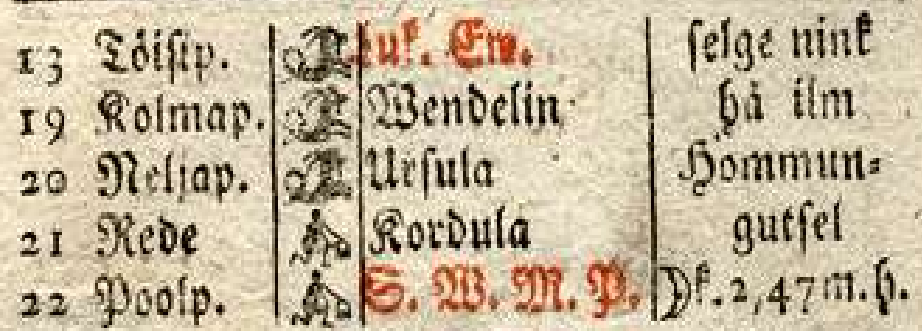 13 Töisip. Luk. Ew. selge nink
19 Kolmap. Wendelin hä ilm
20 Neljap. Ursula Hommun=
21 Rede Kordula gutsel
22 Poolp. S. W. M. P. ☽k. 2,47 m. h.